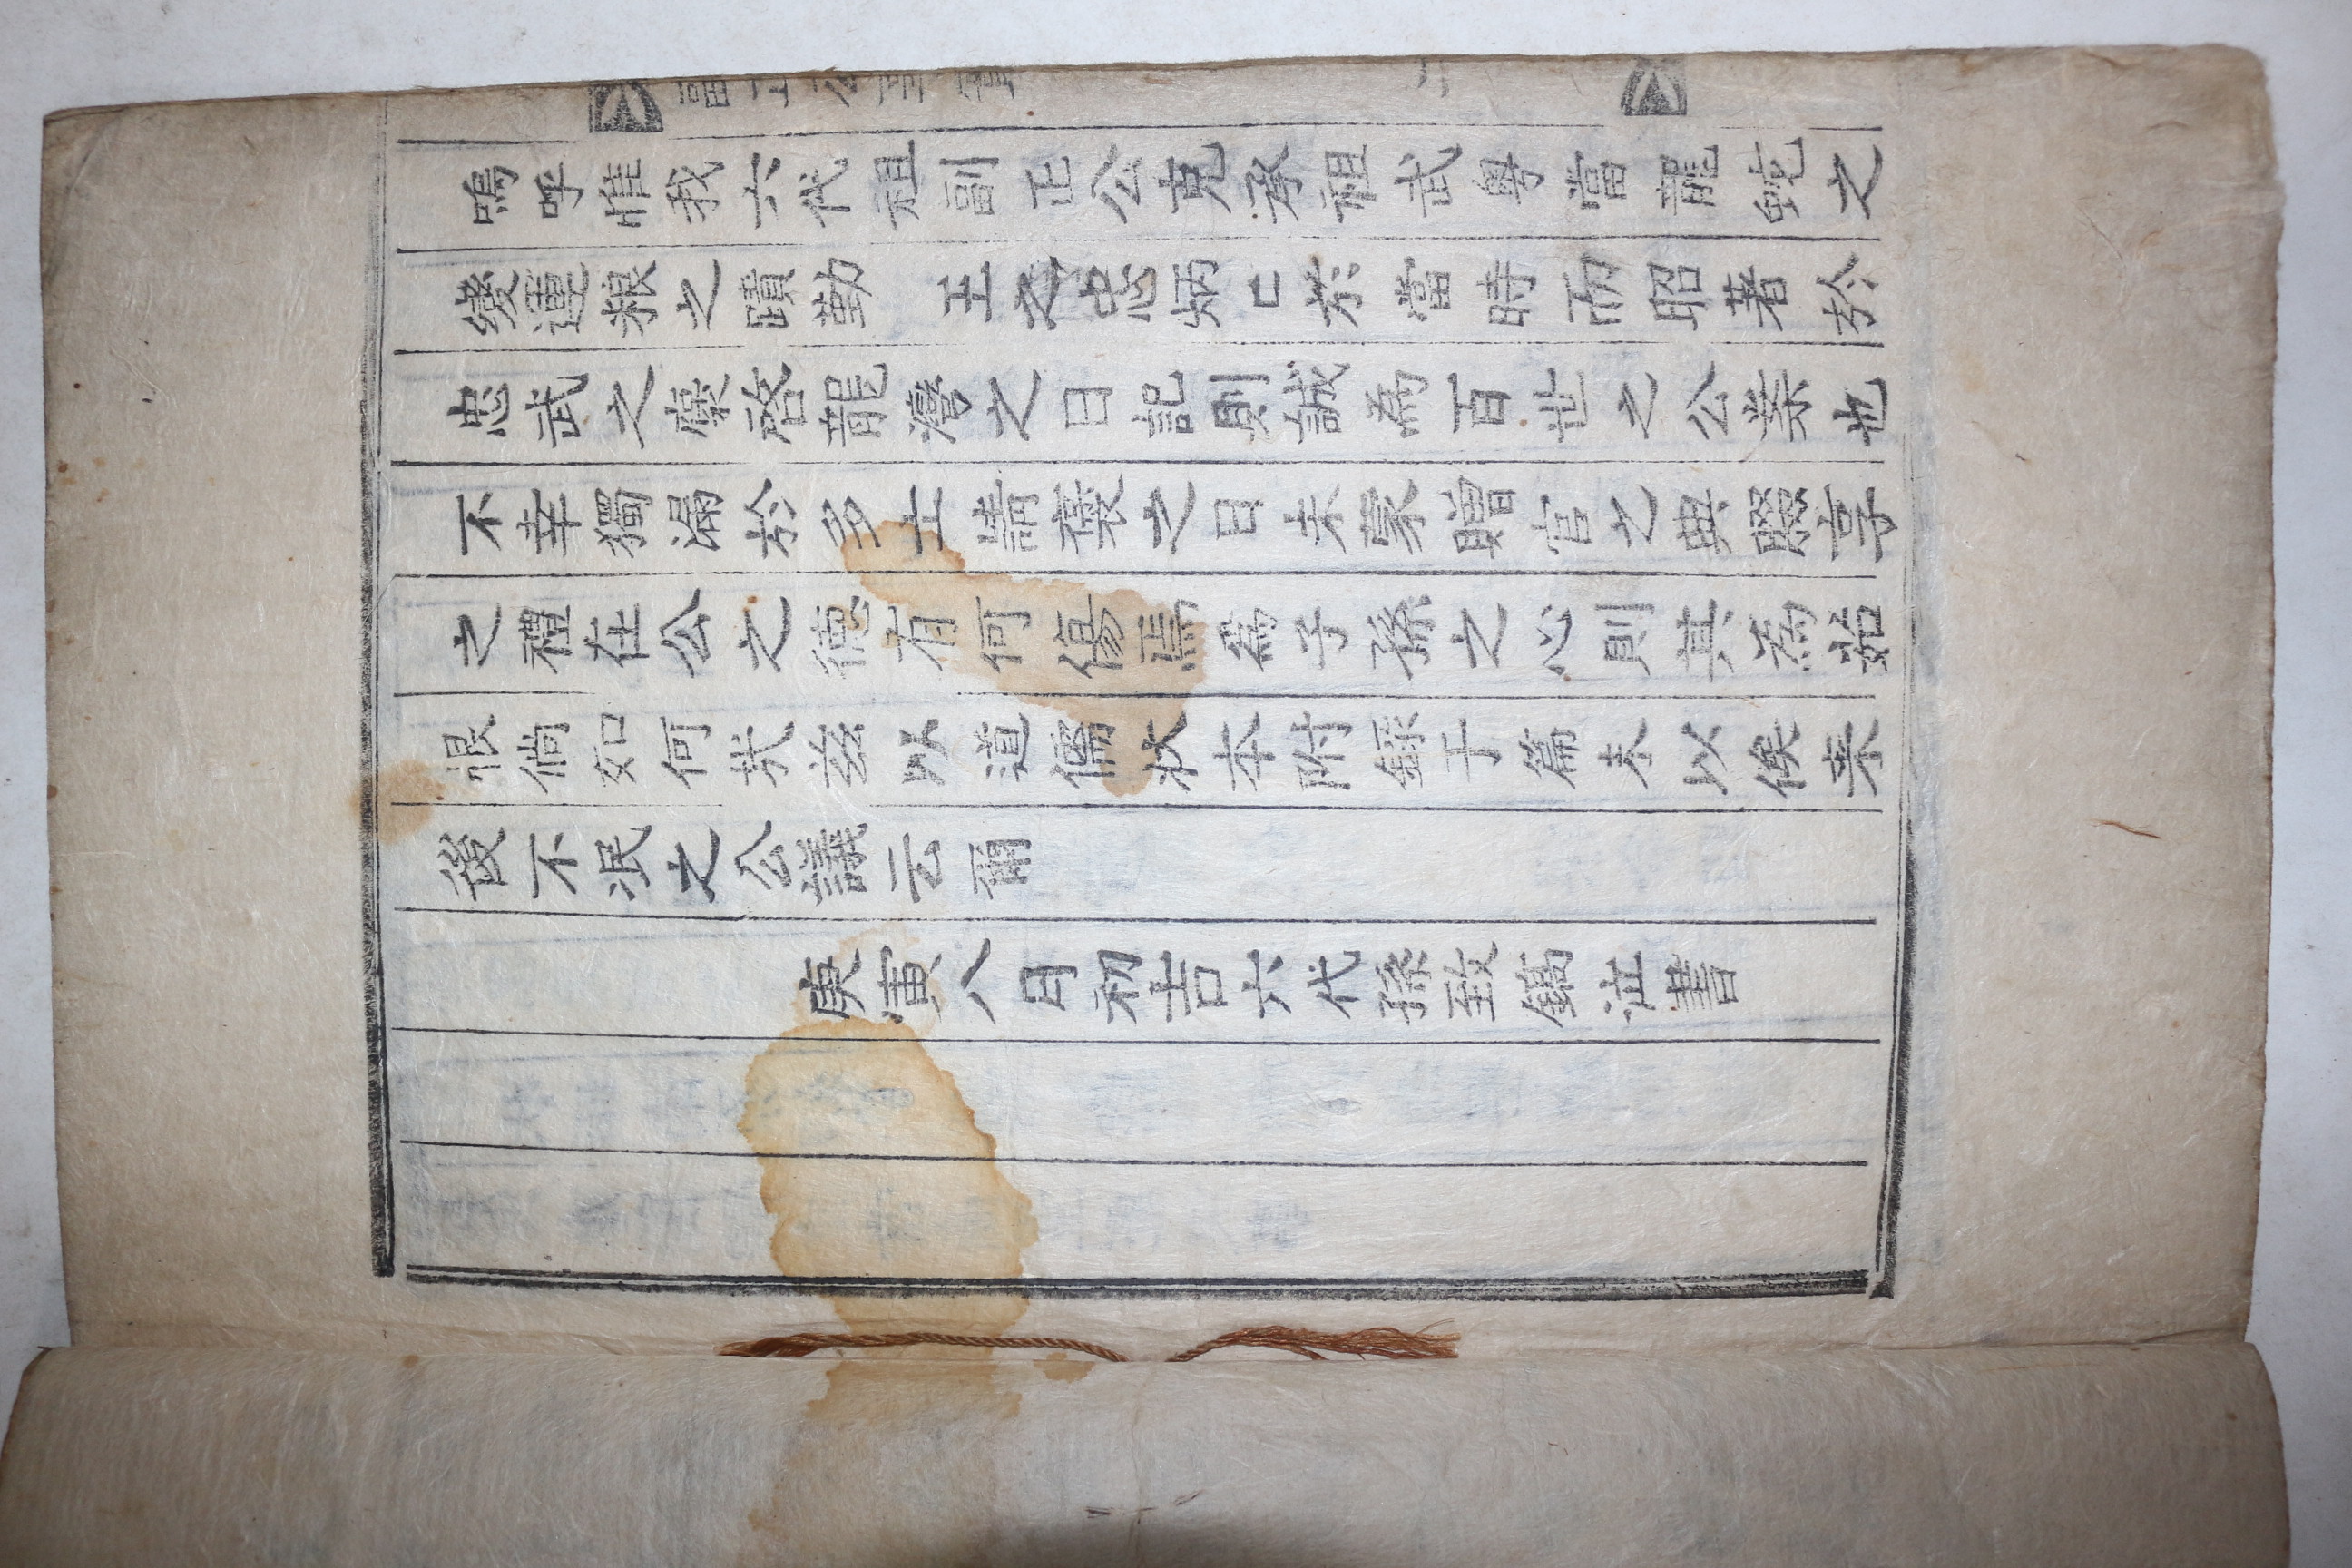 嗚呼惟我六代祖副正公克承祖武粤當龍蛇之
變運粮之蹟勤 王之忠炳已於當時而昭著於
忠武之稟啓龍灣之日記則誠爲百世之公案也
不幸獨漏於多士請褒之日未蒙贈官之典腏享
之禮在公之德有何傷焉爲子孫之心則其爲
恨倘如何哉玆以道儒狀本附錄于篇末以俟來
後不泯之公議云爾
庚寅八月初吉六代孫致鎬泣書